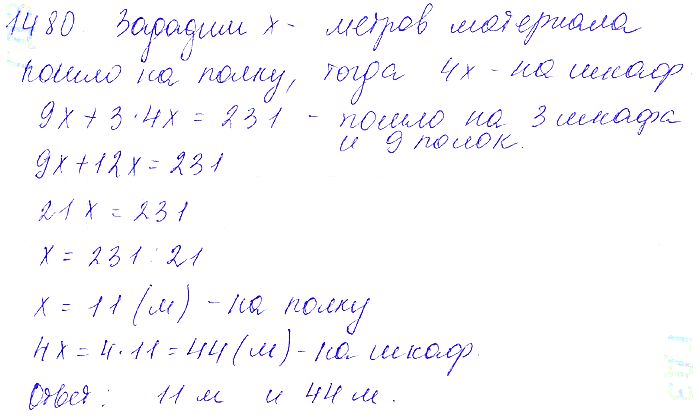 1480 Зададим х - метров материала
пошло на полку, тогда 4х - на шкаф.
9х + 3·4х = 231 - пошло на 3 шкафа
и 9 полок.
9х + 12х = 231
21х = 231
х = 231 : 21
х = 11 (м) - на полку
4х = 4·11 = 44 (м) - на шкаф.
Ответ: 11 м и 44 м.